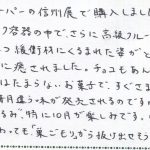 ーパーの信州展で購入しまし
ク容器の中で、さらに高級フルー
つ緩衝材にくるまれた姿がと
に癒されました。チョコもあん
はたまらないお菓子で、すぐさま
月違う味が発売されるのです
るみ"。特に10月が楽しみです。
わっても"巣ごもり"から抜け出せそう